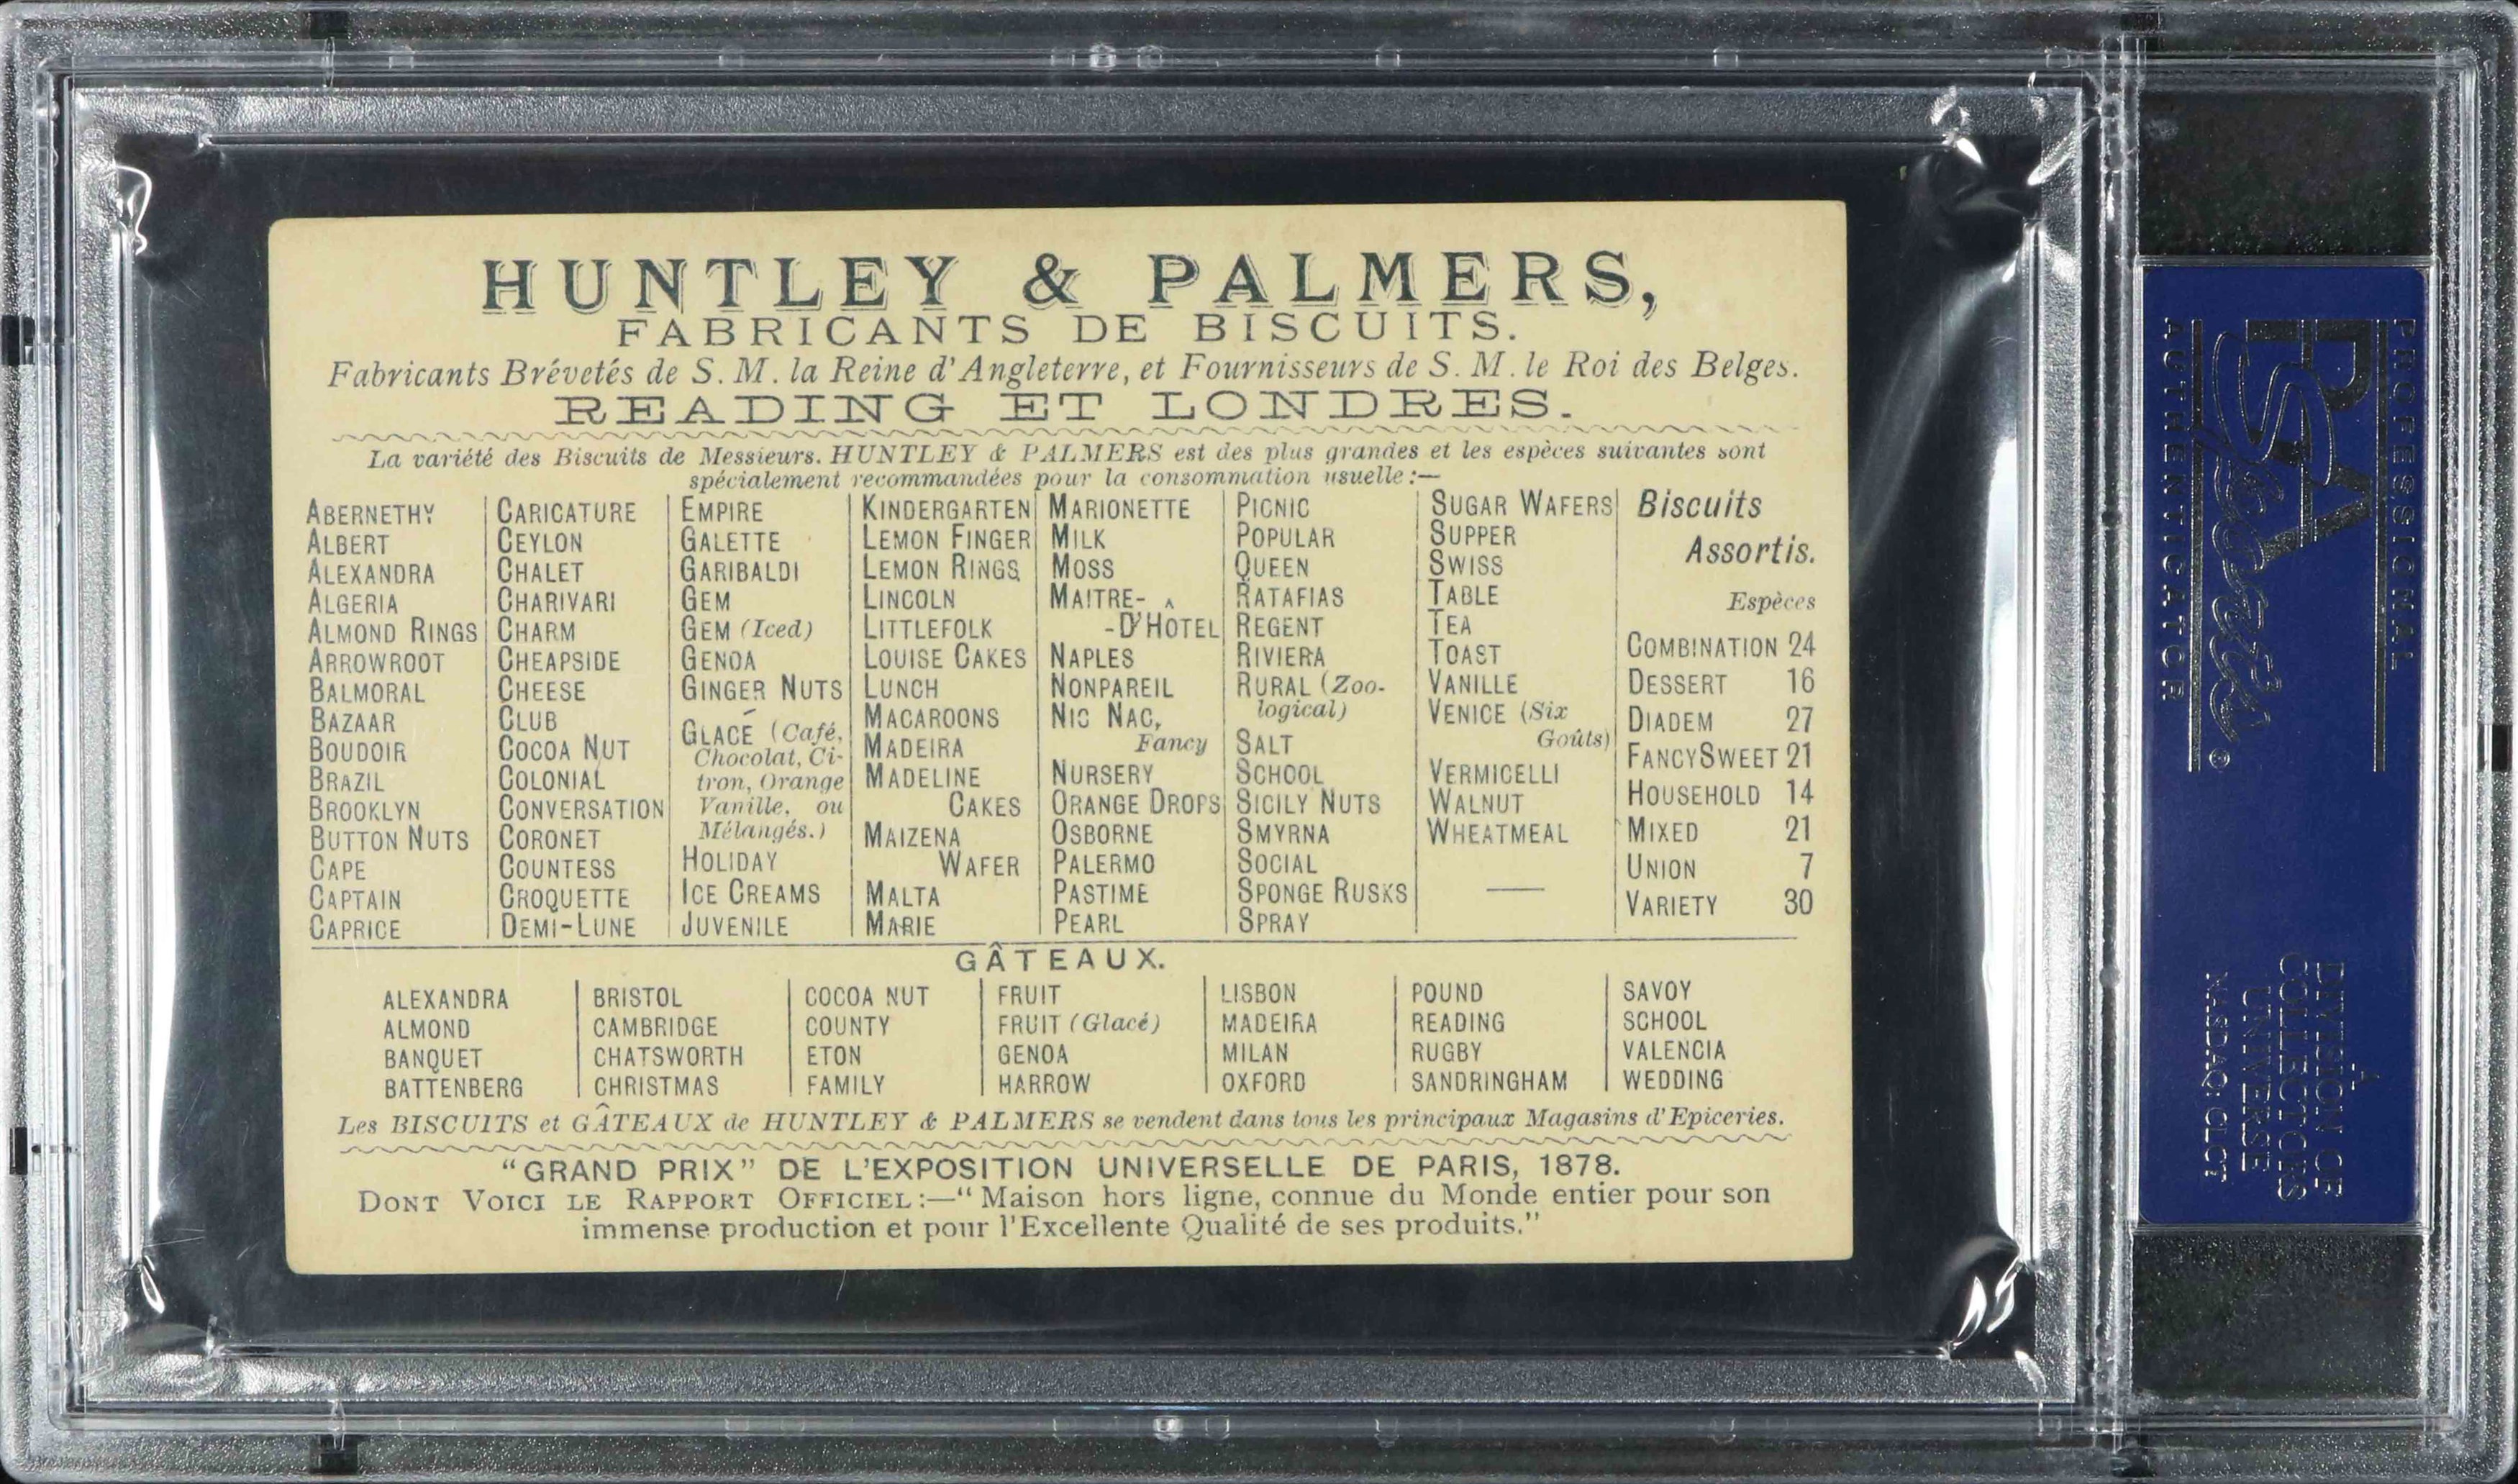 HUNTLEY & PALMERS,
FABRICANTS DE BISCUITS.
Fabricants Brévetés de S. M. la Reine d'Angleterre, et Fournisseurs de S. M. le Roi des Belges.
READING ET LONDRES.
La variété des Biscuits de Messieurs. HUNTLEY & PALMERS est des plus grandes et les espèces suivantes sont
spécialement recommandées pour la consommation usuelle:—
ABERNETHY
ALBERT
ALEXANDRA
ALGERIA
ALMOND RINGS
ARROWROOT
BALMORAL
BAZAAR
BOUDOIR
BRAZIL
BROOKLYN
BUTTON NUTS
CAPE
CAPTAIN
CAPRICE
CARICATURE
CEYLON
CHALET
CHARIVARI
CHARM
CHEAPSIDE
CHEESE
CLUB
COCOA NUT
COLONIAL
CONVERSATION
CORONET
COUNTESS
CROQUETTE
DEMI-LUNE
EMPIRE
GALETTE
GARIBALDI
GEM
GEM (Iced)
GENOA
GINGER NUTS
GLACÉ (Café,
Chocolat, Ci-
tron, Orange
Vanille, ou
Mélangés.)
HOLIDAY
ICE CREAMS
JUVENILE
KINDERGARTEN
LEMON FINGER
LEMON RINGS
LINCOLN
LITTLEFOLK
LOUISE CAKES
LUNCH
MACAROONS
MADEIRA
MADELINE
CAKES
MAIZENA
WAFER
MALTA
MARIE
MARIONETTE
MILK
MOSS
MAITRE-
-D'HÔTEL
NAPLES
NONPAREIL
NIC NAC,
Fancy
NURSERY
ORANGE DROPS
OSBORNE
PALERMO
PASTIME
PEARL
PICNIC
POPULAR
QUEEN
RATAFIAS
REGENT
RIVIERA
RURAL (Zoo-
logical)
SALT
SCHOOL
SICILY NUTS
SMYRNA
SOCIAL
SPONGE RUSKS
SPRAY
SUGAR WAFERS
SUPPER
SWISS
TABLE
TEA
TOAST
VANILLE
VENICE (Six
Goûts)
VERMICELLI
WALNUT
WHEATMEAL
Biscuits
Assortis.
Espèces
COMBINATION 24
DESSERT 16
DIADEM 27
FANCY SWEET 21
HOUSEHOLD 14
MIXED 21
UNION 7
VARIETY 30
GÂTEAUX.
ALEXANDRA
ALMOND
BANQUET
BATTENBERG
BRISTOL
CAMBRIDGE
CHATSWORTH
CHRISTMAS
COCOA NUT
COUNTY
ETON
FAMILY
FRUIT
FRUIT (Glacé)
GENOA
HARROW
LISBON
MADEIRA
MILAN
OXFORD
POUND
READING
RUGBY
SANDRINGHAM
SAVOY
SCHOOL
VALENCIA
WEDDING
Les BISCUITS et GÂTEAUX de HUNTLEY & PALMERS se vendent dans tous les principaux Magasins d'Epiceries.
"GRAND PRIX" DE L'EXPOSITION UNIVERSELLE DE PARIS, 1878.
DONT VOICI LE RAPPORT OFFICIEL:—"Maison hors ligne, connue du Monde entier pour son
immense production et pour l'Excellente Qualité de ses produits."
PROFESSIONAL
PSA
Sports
®
AUTHENTICATOR
A
DIVISION OF
COLLECTORS
UNIVERSE
NASDAQ: CLCT